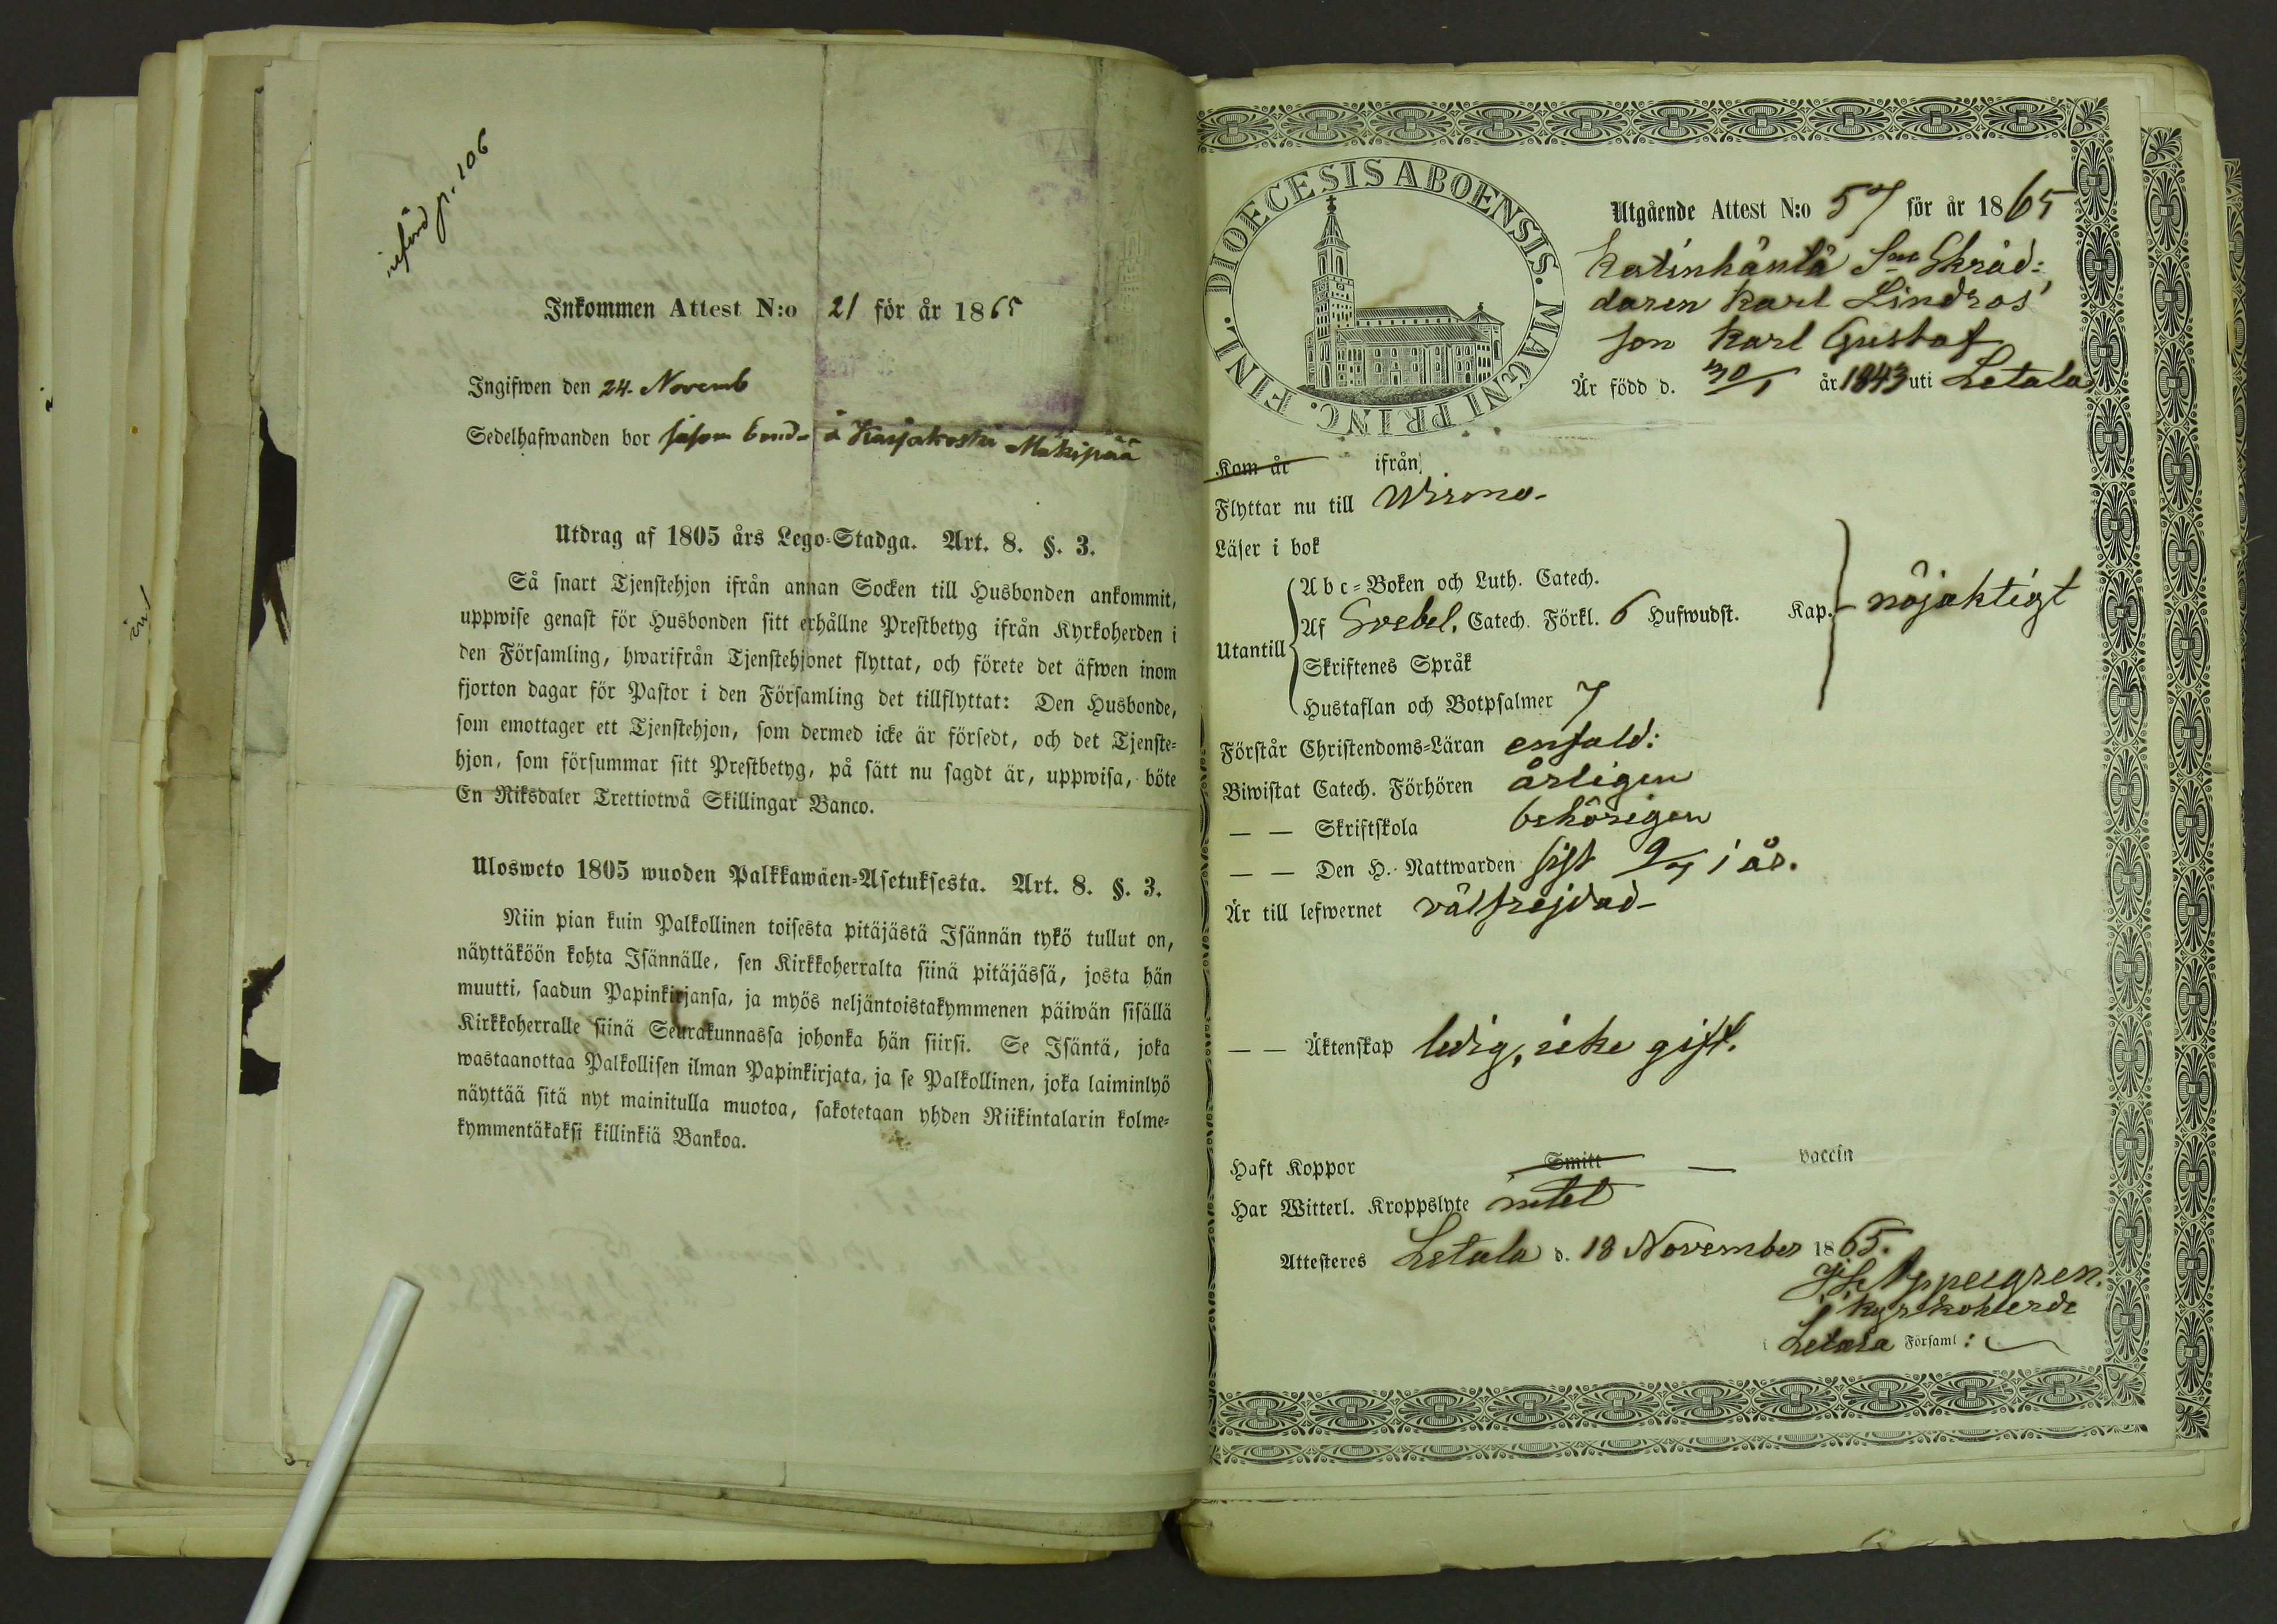 införd p. 106
Inkommen Attest N:o 21 för år 1865
Ingifwen den 24. Novemb
Sedelhafwanden bor såsom bond- å Karjakoski Mäkipää
Utdrag af 1805 års Lego-Stadga. Art. 8. §. 3.
Så snart Tjenstehjon ifrån annan Socken till Husbonden ankommit,
uppwise genast för Husbonden sitt erhållne Prestbetyg ifrån Kyrkoherden i
den Församling, hwarifrån Tjenstehjonet flyttat, och förete det äfwen inom
fjorton dagar för Pastor i den Församling det tillflyttat: Den Husbonde,
som emottager ett Tjenstehjon, som dermed icke är försedt, och det Tjenste-
hjon, som försummar sitt Prestbetyg, på sätt nu sagdt är, uppwisa, böte
En Riksdaler Trettiotwå Skillingar Banco.
Ulosweto 1805 wuoden Palkkawäen-Asetuksesta. Art. 8. §. 3.
Niin pian kuin Palkollinen toisesta pitäjästä Isännän tykö tullut on,
näyttäköön kohta Isännälle, sen Kirkkoherralta siinä pitäjässä, josta hän
muutti, saadun Papinkirjansa, ja myös neljäntoistakymmenen päiwän sisällä
Kirkkoherralle siinä Seurakunnassa johonka hän siirsi. Se Isäntä, joka
wastaanottaa Palkollisen ilman Papinkirjata, ja se Palkollinen, joka laiminlyö
näyttää sitä nyt mainitulla muotoa, sakotetaan yhden Riikintalarin kolme-
kymmentäkaksi killinkiä Bankoa.
DIOECESIS ABOENSIS. MAGNI PRINC. FINL.
Utgående Attest N:o 57 för år 1865
Katinhäntä Skräd:
daren Karl Lindros'
son Karl Gustaf
Är född d. 30/1 år 1843 uti Letala
Kom år ifrån
Flyttar nu till Wirmo-
Läser i bok
Utantill
Abc-Boken och Luth. Catech.
Af Svebel. Catech. Förkl. 6 Hufwudst. Kap. nöjaktigt
Skriftenes Språk
Hustaflan och Botpsalmer 7
Förstår Christendoms-Läran enfald:
Biwistat Catech. Förhören årligen
— — Skriftskola behörigen
— — Den H. Nattwarden sist 9/7 i år.
Är till lefwernet välfrejdad-
— — Äktenskap ledig, icke gift.
Haft Koppor Smitt — vaccin
Har Witterl. Kroppslyte intet
Attesteres Letala d. 18 November 1865.
Appelgren.
Kyrkoherde
i Letala Församl: